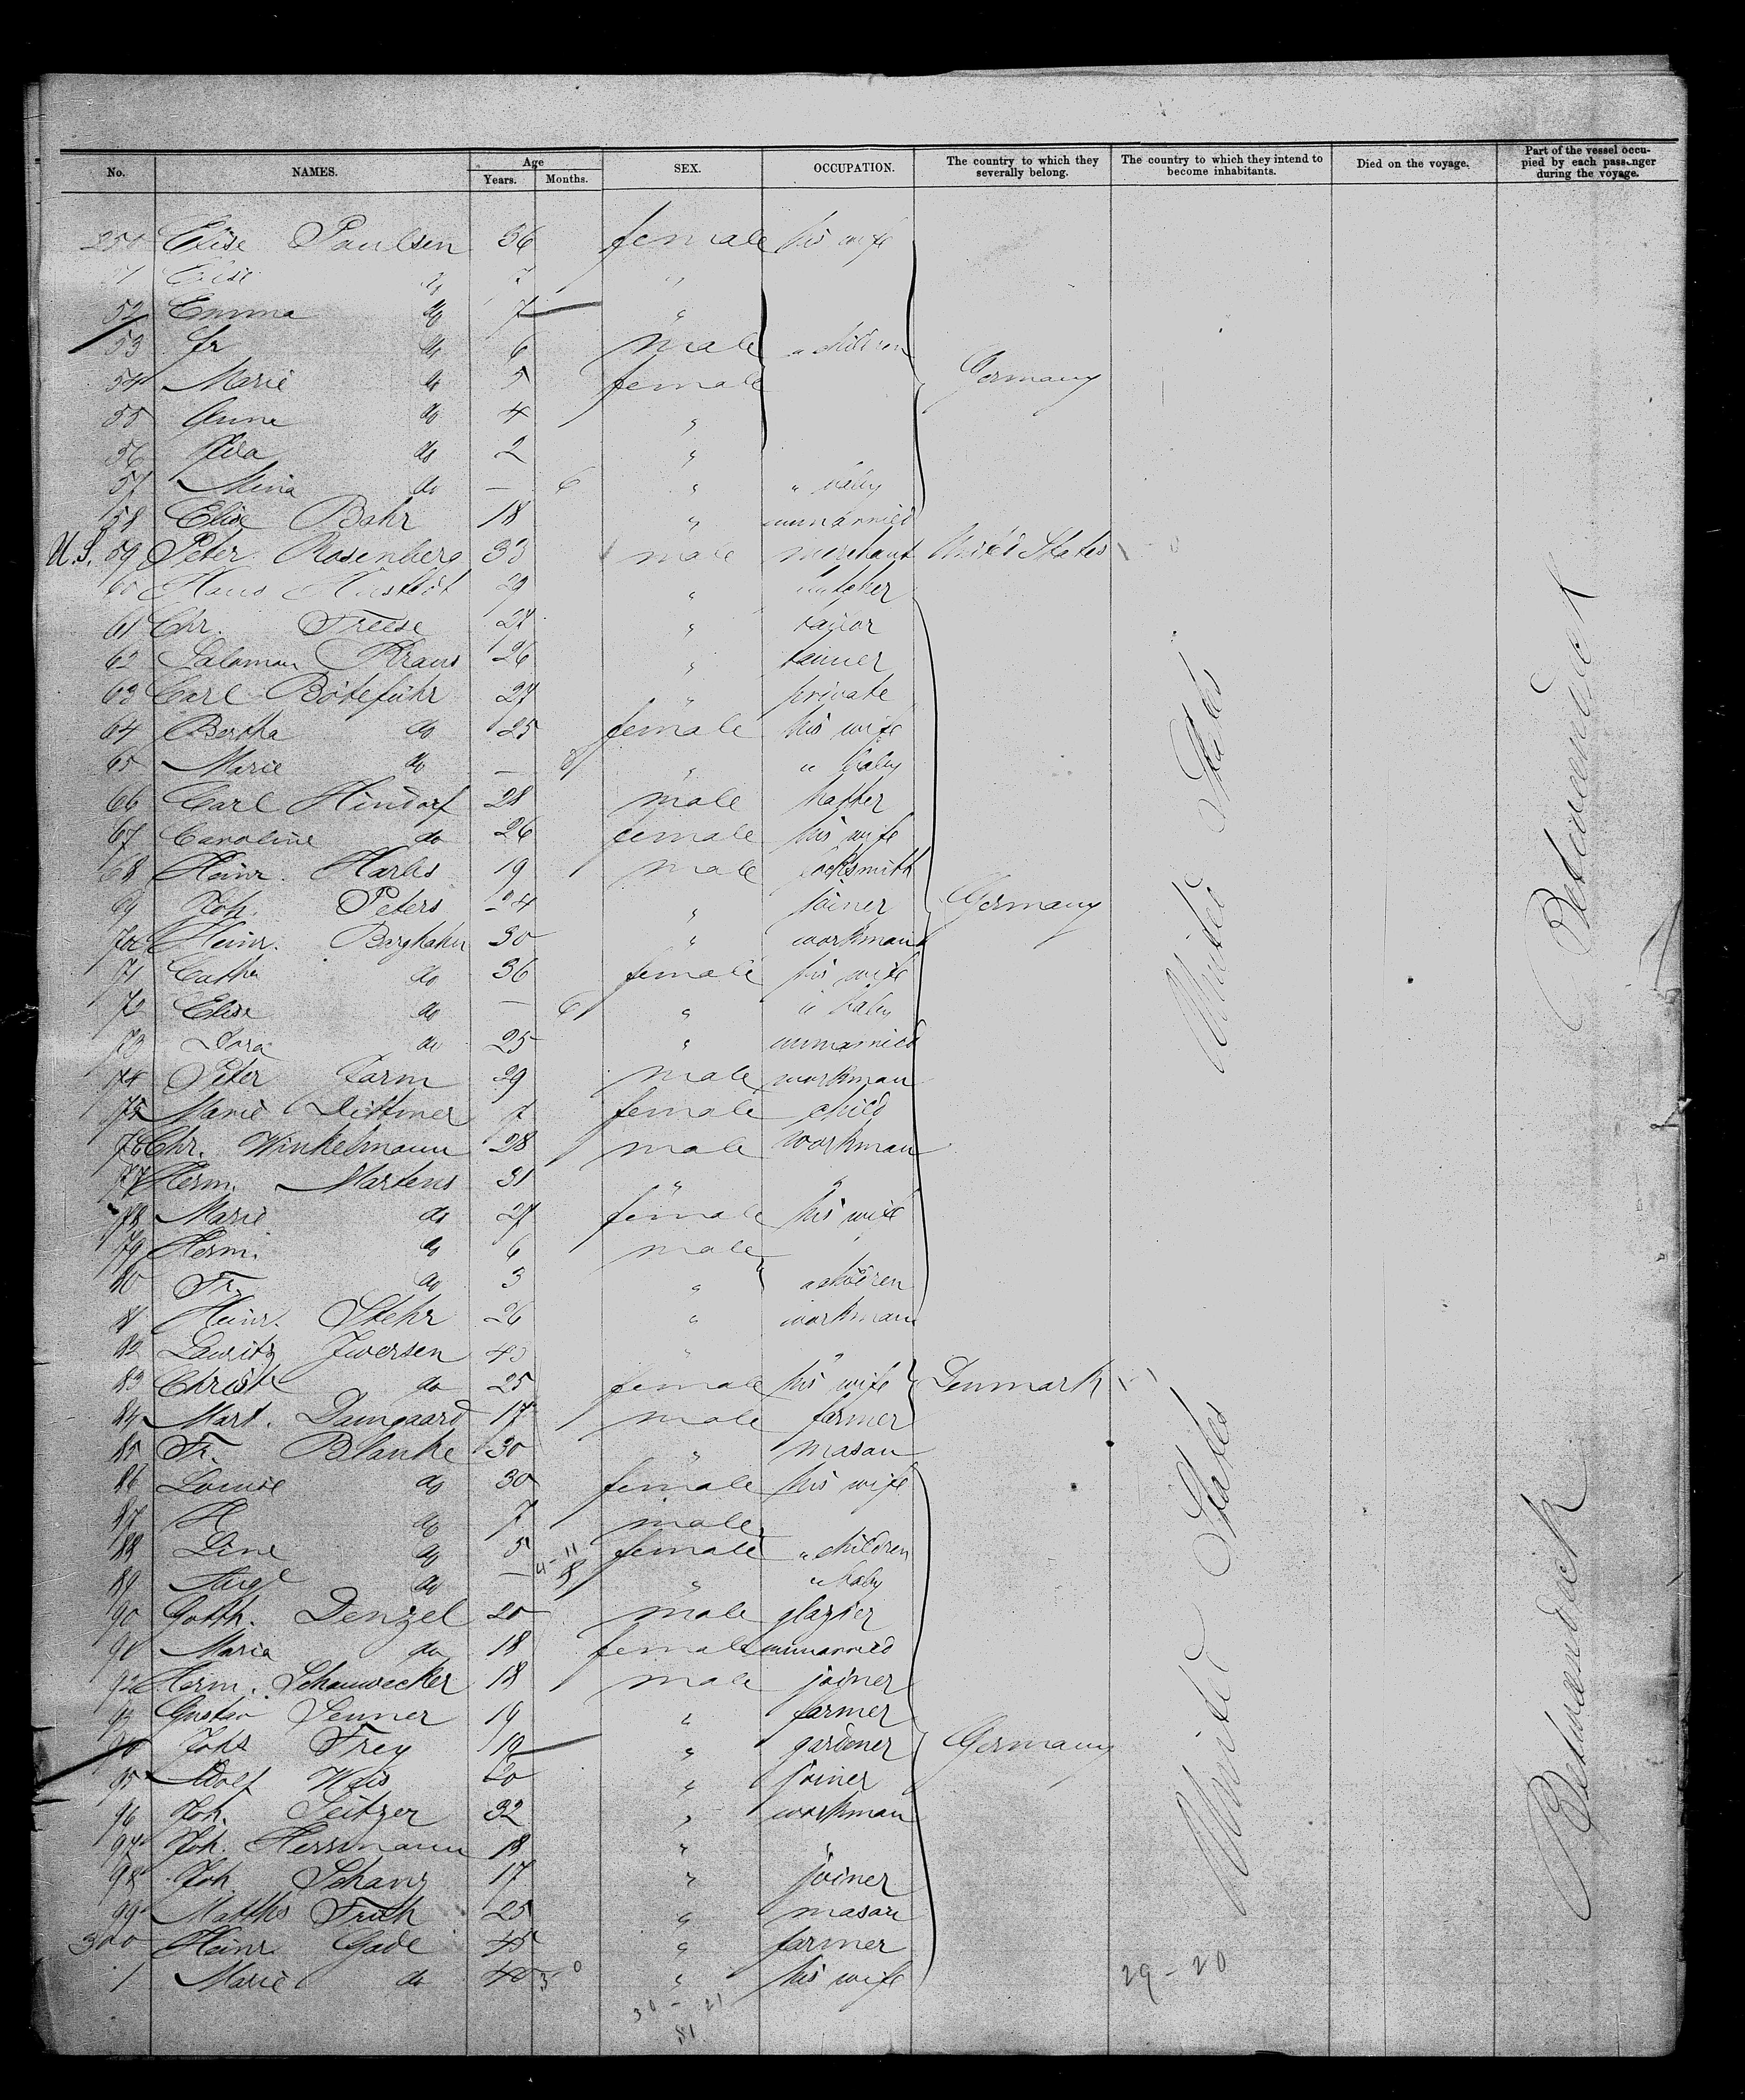 No. NAMES. Age Years. Months. SEX. OCCUPATION. The country to which they severally belong. The country to which they intend to become inhabitants. Died on the voyage. Part of the vessel occupied by each passenger during the voyage.
250 Elise Paulsen 36 female his wife
51 Elise do "
52 Emma do 7 "
53 Fr do 6 male " children
54 Marie do 5 female Germany
55 Anna do 4 "
56 Ida do 2 "
57 Mina do — 6 " " baby
58 Elise Bahr 18 " unmarried
U.S. 59 Peter Rosenberg 33 male merchant United States
60 Hans 29 "
61 Chr. Freese 27 " tailor
62 Salomon Kraus 26 " tanner
63 Carl Böteführ 27 " private
64 Bertha do 25 female his wife
65 Marie do — 8 " " baby
66 Carl Hindorf 28 male hatter
67 Caroline do 26 female his wife
68 Heinr. Harbs 19 male locksmith
69 Joh. Peters 24 " joiner Germany
70 Heinr. Barghahn 30 " workman
71 Catha do 36 female his wife
72 Elise do — 6 " " baby
73 Dora do 25 " unmarried
74 Peter 29 male workman
75 Marie Dittmer 7 female child
76 Chr. Winkelmann 28 male workman
77 Herm. Martens 31 " "
78 Marie do 27 female his wife
79 Herm. do 6 male
80 Fr. do 3 " " children
81 Heinr. Stehr 26 " workman
82 Lauritz Iwersen 40 " "
83 Christe do 25 female his wife Denmark
84 Mart. Damgaard 17 male farmer
85 Fr. Blanke 30 " masan
86 Louise do 30 female his wife
87 H do 7 male
88 Line do 5 female " children
89 Aug. do — 8 " " baby
90 Gotth. Denzel 20 male glazier
91 Maria do 18 female unmarried
92 Herm. Schauwecker 18 male joiner
93 Gustav Senner 19 " farmer
Johs Frey 19 " gardener Germany
95 Adolf Wais 20 " joiner
96 Joh. Seitzer 32 " workman
97 Joh. Herrmann 18 " "
98 Joh Schanz 17 " joiner
99 Matths 25 " masan
300 Heinr. Gade 45 " farmer
1 Marie do 40 " his wife
United States
United States
Betweendeck
Betweendeck
29-20
30-21
81